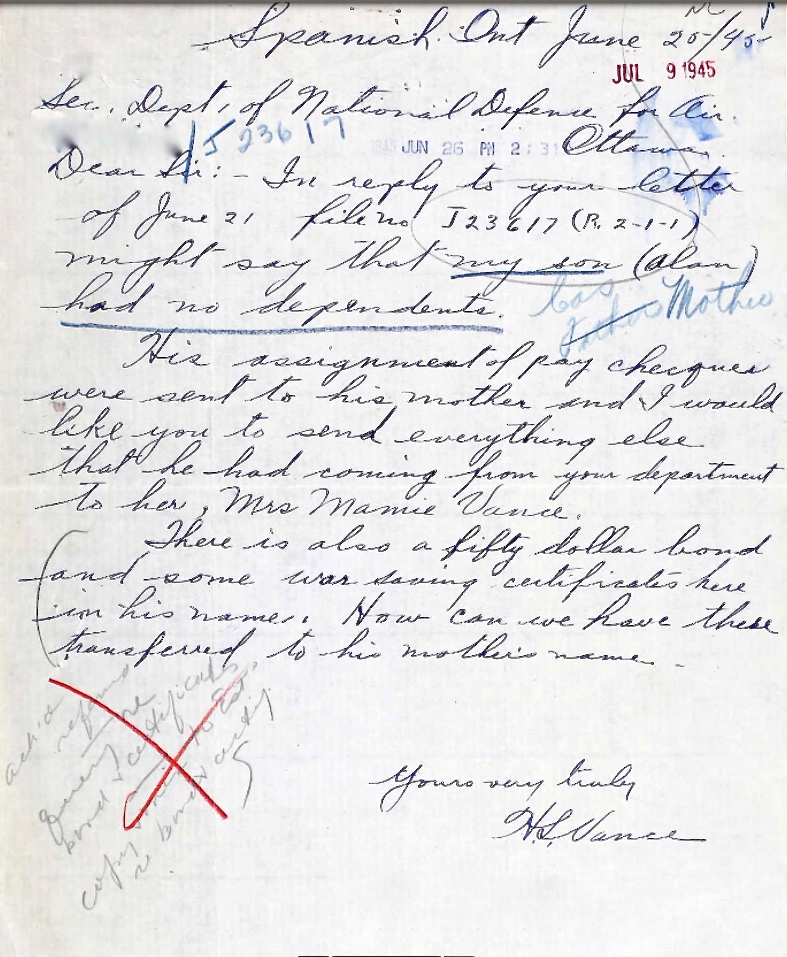 Spanish. Ont June 25/45
JUL 9 1945
Sec. Dept. of National Defence for Air.
J 23617
1945 JUN 26 PM 2:31 Ottawa.
Dear Sir:- In reply to your letter
of June 21 file no J23617 (R. 2-1-1)
might say that my son (Alan)
had no dependents.
has
Mother
His assignment of pay checques
were sent to his mother and I would
like you to send everything else
that he had coming from your department
to her, Mrs Mamie Vance.
There is also a fifty dollar bond
and some war saving certificates here
in his name. How can we have these
transferred to his mother's name.
query re
bond & certificates
copy to Est.
re bonds
Yours very truly
H.S. Vance